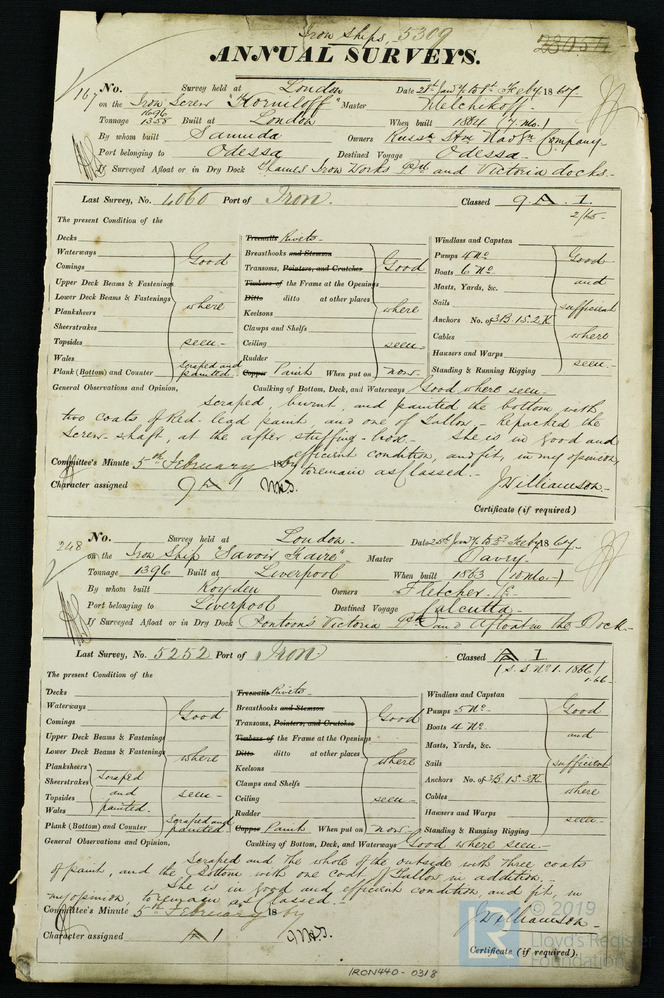 Iron Ships 5309
ANNUAL SURVEYS.
167 No. Survey held at London Date 28th Jany to 1st Feby 1867
on the Iron Screw "Korniloff" Master Metchikoff
Tonnage 1096 1358 Built at London When built 1864 (7 mo.)
By whom built Samuda Owners Russn Stm Navgn Company
Port belonging to Odessa Destined Voyage Odessa
If Surveyed Afloat or in Dry Dock Thames Iron Works and Victoria docks.
Last Survey, No. 4060 Port of Iron Classed 9 A 1
2/65
The present Condition of the
Decks
Waterways
Comings
Upper Deck Beams & Fastenings
Lower Deck Beams & Fastenings
Planksheers
Sheerstrakes
Topsides
Wales
Plank (Bottom) and Counter
Good
where
seen
scraped and painted
Treenails Rivets
Breasthooks and Stemson
Transoms, Pointers, and Crutches
Timbers of the Frame at the Openings
Ditto ditto at other places
Keelsons
Clamps and Shelfs
Ceiling
Rudder
Copper Paint When put on now
Good
where
seen
Windlass and Capstan
Pumps 4 No
Boats 6 No
Masts, Yards, &c.
Sails
Anchors No. of 3B. 1S. 2K
Cables
Hausers and Warps
Standing & Running Rigging
Good
and
sufficient
where
seen
General Observations and Opinion, Caulking of Bottom, Deck, and Waterways Good where seen
scraped, burnt, and painted the bottom with
two coats of Red-lead paint and one of Tallow. Repacked the
Screw-shaft, at the after stuffing-box. She is in good and
efficient condition, and fit, in my opinion,
to remain as classed.
Committee's Minute 5th February 1867
Character assigned 9 A 1
J Williamson
Certificate (if required)
248 No. Survey held at London Date 25th Jany to 5th Feby 1867
on the Iron Ship "Savoir Faire" Master Davey
Tonnage 1396 Built at Liverpool When built 1863 (10 mo.)
By whom built Royden Owners Fletcher
Port belonging to Liverpool Destined Voyage Calcutta
If Surveyed Afloat or in Dry Dock Pontoons Victoria Dock and Afloat in the Dock
Last Survey, No. 5252 Port of Iron Classed A 1
(S.S. No 1. 1866)
1.66
The present Condition of the
Decks
Waterways
Comings
Upper Deck Beams & Fastenings
Lower Deck Beams & Fastenings
Planksheers
Sheerstrakes
Topsides
Wales
scraped and painted
Plank (Bottom) and Counter
Good
where
seen
scraped and painted
Treenails Rivets
Breasthooks and Stemson
Transoms, Pointers, and Crutches
Timbers of the Frame at the Openings
Ditto ditto at other places
Keelsons
Clamps and Shelfs
Ceiling
Rudder
Copper Paint When put on now
Good
where
seen
Windlass and Capstan
Pumps 5 No
Boats 4 No
Masts, Yards, &c.
Sails
Anchors No. of 3B. 1S. 3K
Cables
Hausers and Warps
Standing & Running Rigging
Good
and
sufficient
where
seen
General Observations and Opinion, Caulking of Bottom, Deck, and Waterways Good where seen
scraped and the whole of the outside with three coats
of paint, and the Bottom with one coat of Tallow in addition.
She is in good and efficient condition, and fit, in
my opinion, to remain as classed.
Committee's Minute 5th February 1867
Character assigned A 1
J Williamson
Certificate (if required).
© 2019
Lloyd's Register
Foundation
IRON440-0318